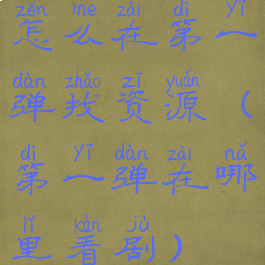 zěn me zài dì yī
怎么在第一
dàn zhǎo zī yuán
弹找资源（
dì yī dàn zài nǎ
第一弹在哪
lǐ kàn jù
里看剧）